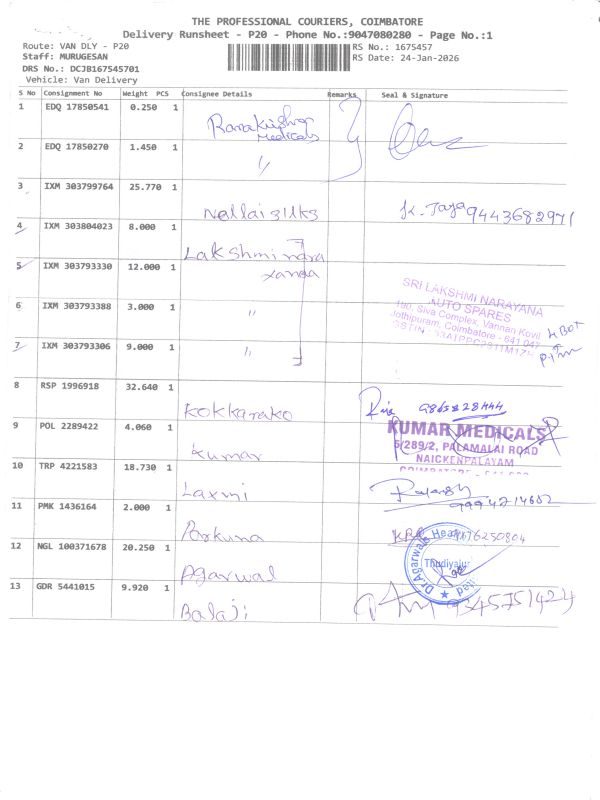 THE PROFESSIONAL COURIERS, COIMBATORE
Delivery Runsheet - P20 - Phone No.:9047080280 - Page No.:1
Route: VAN DLY - P20
RS No.: 1675457
Staff: MURUGESAN
RS Date: 24-Jan-2026
DRS No.: DCJB167545701
Vehicle: Van Delivery
S No Consignment No Weight PCS Consignee Details Remarks Seal & Signature
1 EDQ 17850541 0.250 1
Medicals
2 EDQ 17850270 1.450 1
"
3 IXM 303799764 25.770 1
Nellai silks
9443682971
4 IXM 303804023 8.000 1
Lakshmi nara
5 IXM 303793330 12.000 1
yanaa
SRI LAKSHMI NARAYANA
AUTO SPARES
190, Siva Complex, Vannan Kovil
Jothipuram, Coimbatore - 641 047
6 IXM 303793388 3.000 1
"
7 IXM 303793306 9.000 1
"
8 RSP 1996918 32.640 1
Kokkarako
9 POL 2289422 4.060 1
Kumar
KUMAR MEDICALS
5/289/2, PALAMALAI ROAD
NAICKENPALAYAM
10 TRP 4221583 18.730 1
Laxmi
11 PMK 1436164 2.000 1
12 NGL 100371678 20.250 1
Agarwal
Dr.Agarwals
Thudiyalur
13 GDR 5441015 9.920 1
Balaji